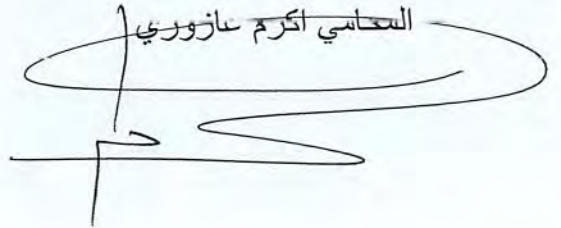 المحامي اكرم عازوري